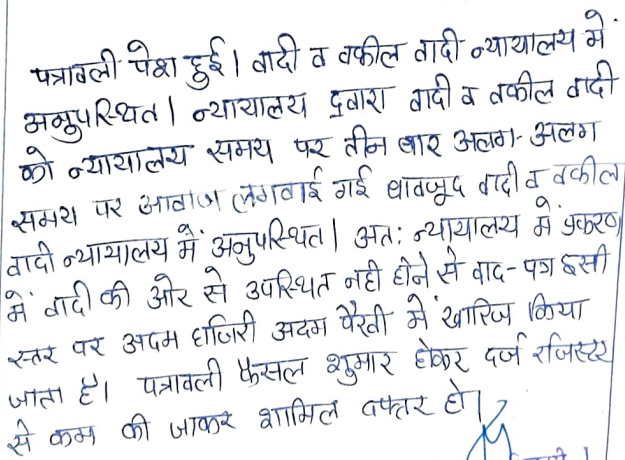 पत्रावली पेश हुई। वादी व वकील वादी न्यायालय में
अनुपस्थित। न्यायालय द्वारा वादी व वकील वादी
को न्यायालय समय पर तीन बार अलग-अलग
समय पर आवाज लगवाई गई बावजूद वादी व वकील
वादी न्यायालय में अनुपस्थित। अतः न्यायालय में प्रकरण
में वादी की ओर से उपस्थित नही होने से वाद-पत्र इसी
स्तर पर अदम हाजिरी अदम पैरवी में खारिज किया
जाता है। पत्रावली फैसल शुमार होकर दर्ज रजिस्टर
से कम की जाकर शामिल दफ्तर हो।